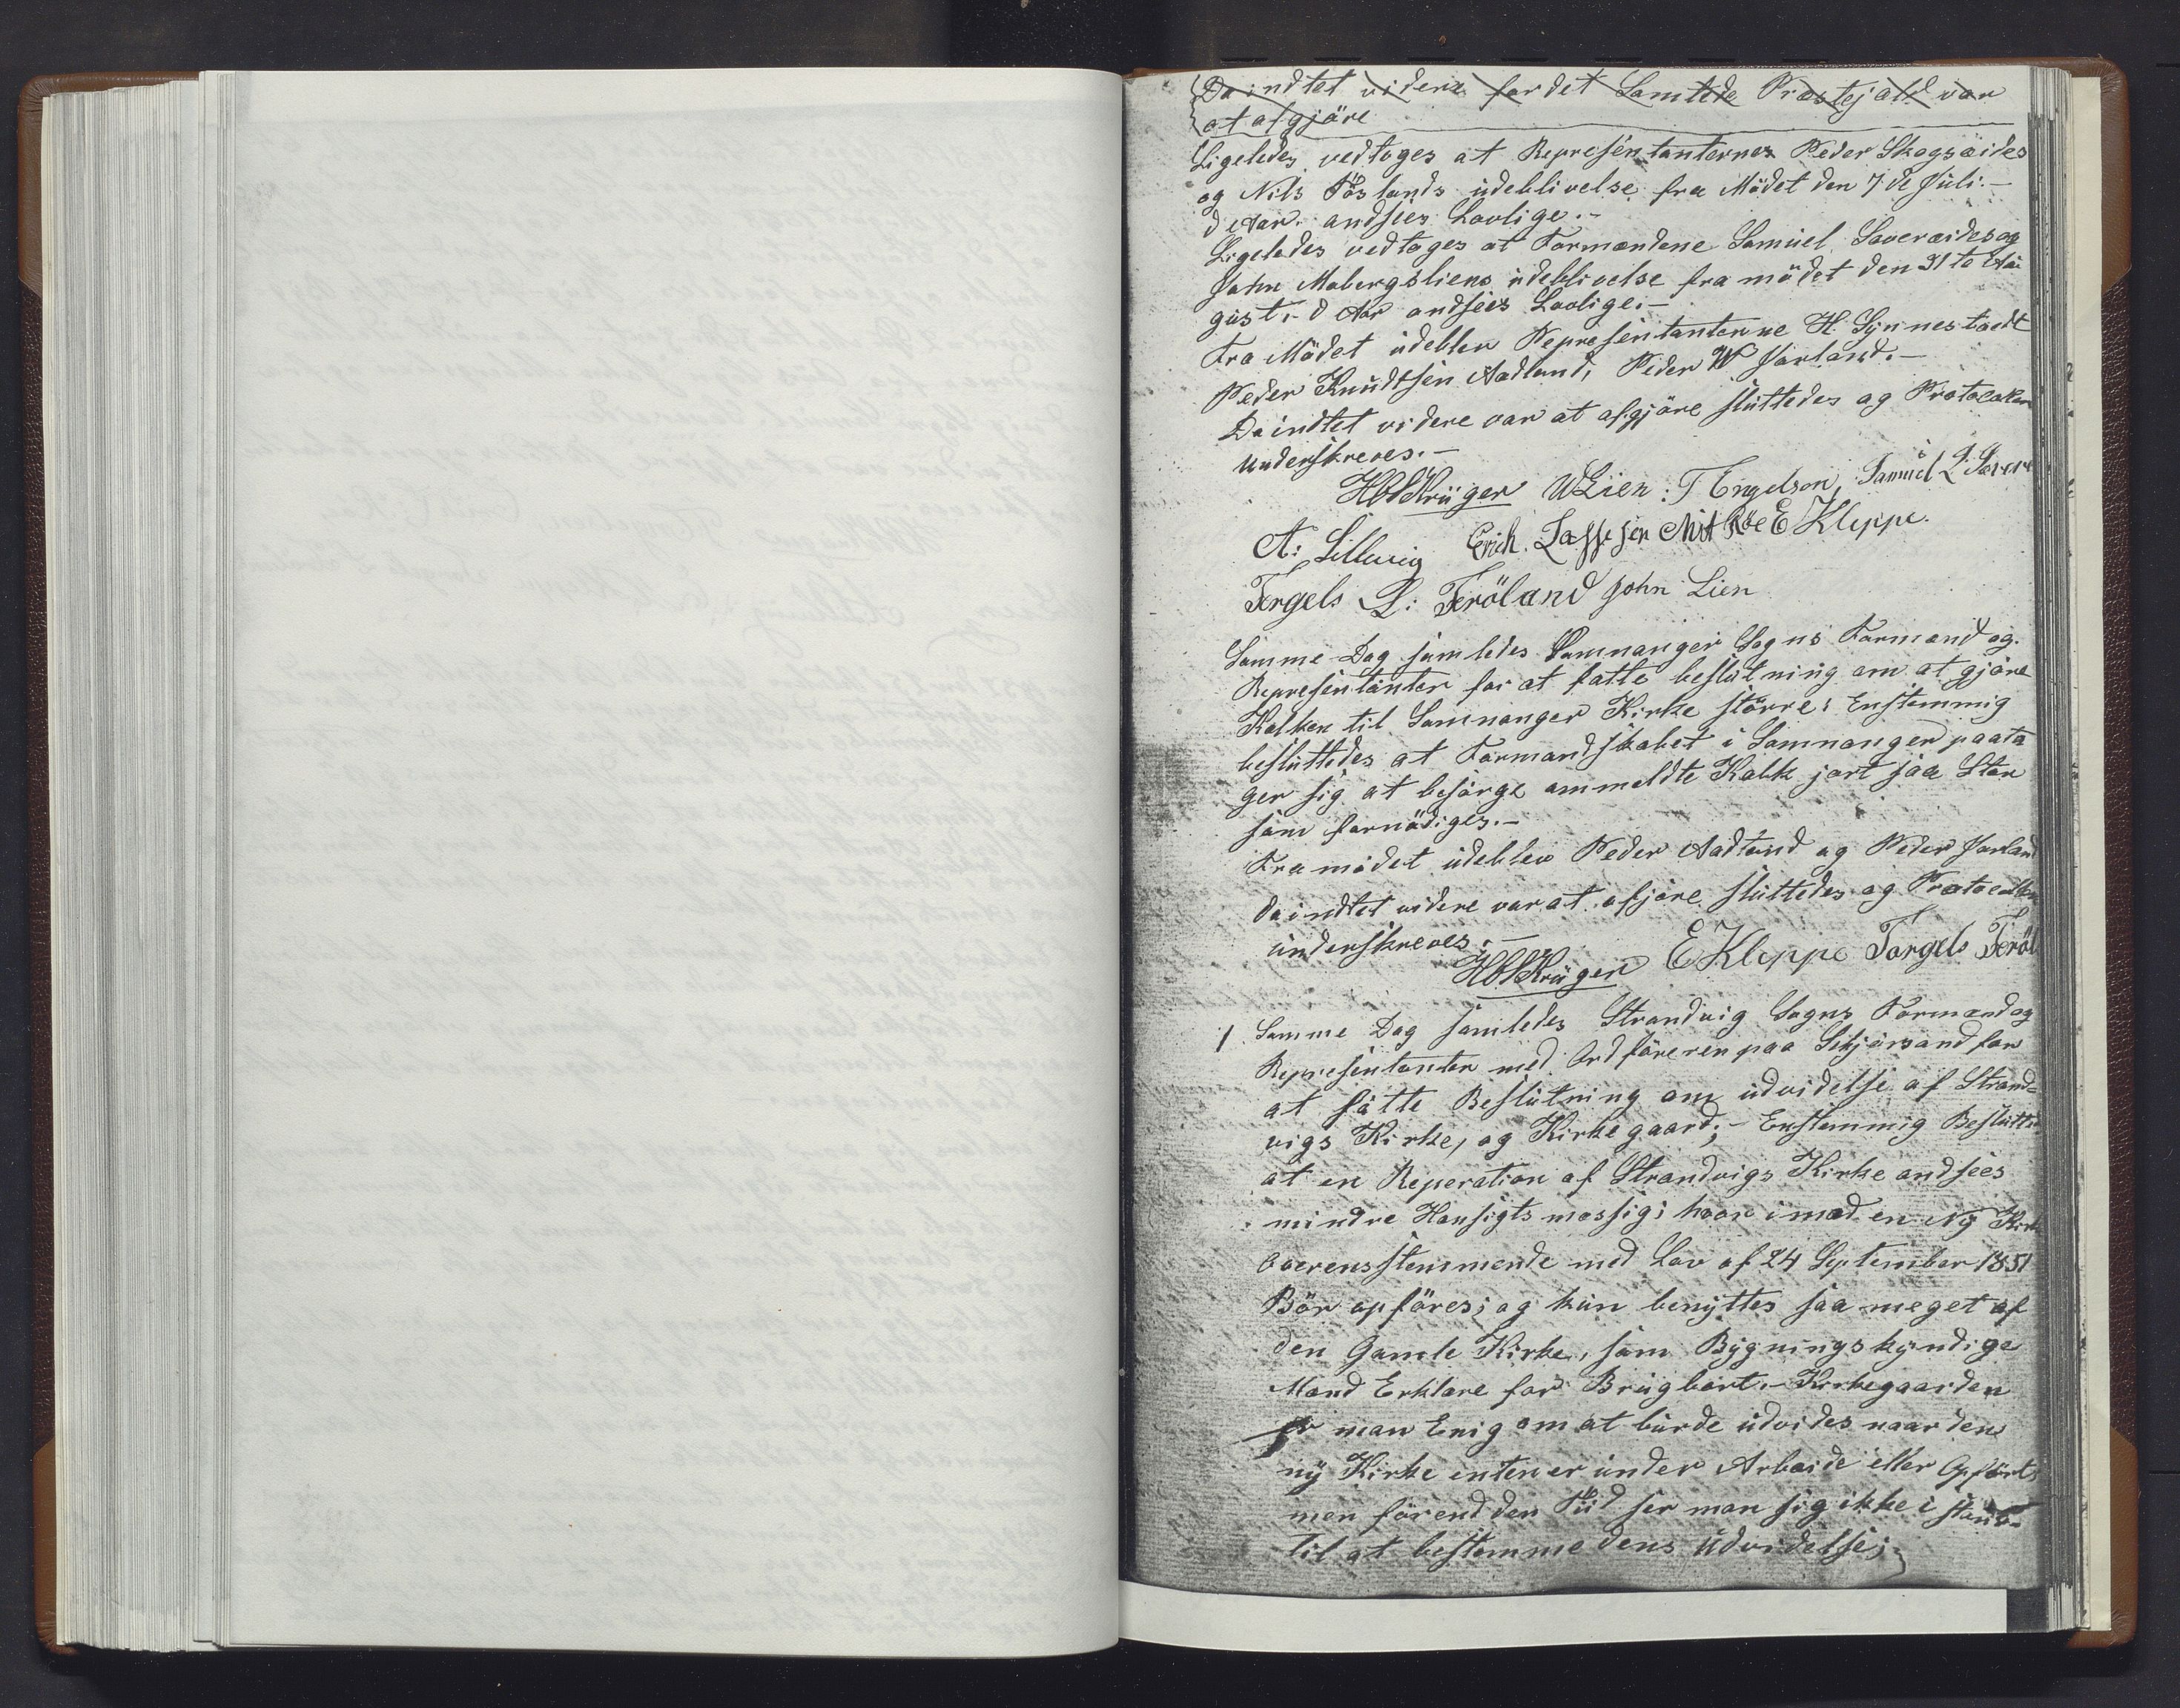 Da indtet videre for det Samtlede Præstejald var
at afgjöre
Ligeledes vedtoges at Repræsentanternes Peder Skogsæides
og Nils Töslands udeblivelse fra Mödet den 7de Juli.-
d Aar. andsees Lovlige.-
Ligeledes vedtoges at Formændene Samuel Saveraides og
John Mobergsliens udeblivelse fra mödet den 31te Au
gust.- d Aar andsees Lovlige.-
Fra Mödet udeblev Repræsentanterne H. Synnestvedt
Peder Knudtsen Aadland, Peder W Jarland.-
Da indtet videre var at afgjöre sluttedes og Protocolen
underskreves.-
Krüger W Lien: T Engelsen, Samuel L:
A: Lillevig Erich. Lassesen E Kleppe.
Torgels L: Fröland John Lien
Samme Dag samledes Samnanger Sogns Formænd og
Repræsentanter for at fatte beslutning om at gjöre
Kalken til Samnanger Kirke större: Enstemmig
besluttedes at Formandskabet i Samnanger paata
ger sig at besörge ommeldte Kalk jort saa Stor
som fornödiges.-
Fra mödet udeblev Peder Aadland og Peder Jarland
da indtet videre var at afjöre sluttedes og Protocollen
underskreves.-
Krüger E Kleppe Torgels Fröl
1. Samme Dag samledes Strandvig Sogns Formænd og
Repræsentanter med Ordföreren paa Sekjörsand for
at fatte Beslutning om udvidelse af Strand=
vigs Kirke, og Kirkegaard;- Enstemmig Beslutted
at en Reperation af Strandvigs Kirke andsees
mindre Hensigtsmæssig; hvor imod en Ny Kirke
Overensstemmende med Lov af 24 September 1851
Bör opföres; og kun benyttes saa meget af
den Gamle Kirke, som Bygningskyndige
Mænd Erklare for Brugbart.- Kirkegaarden
er man Enig om at burde udvides naar den
ny Kirke enten er under Arbeide eller Opfört,
men förend den Tiid ser man sig ikke i stand
til at bestemme dens Udvidelse;